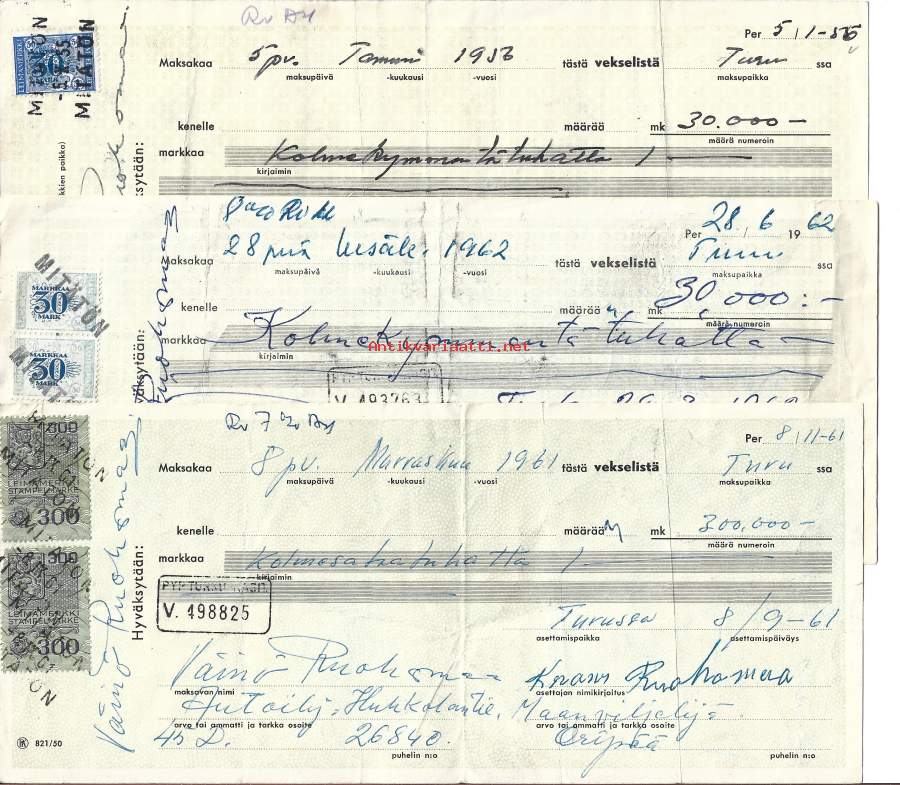 Rv
Per 5/1-56
Maksakaa 5 pv. Tammi 1956 tästä vekselistä Turu ssa
maksupäivä -kuukausi -vuosi maksupaikka
kenelle määrää mk 30.000-
määrä numeroin
markkaa Kolmekymmentätuhatta /-
kirjaimin
kkien paikka)
Hyväksytään:
LEIMAMERKKI
MITÄTÖN
MITÄTÖN
Per 28/6 1962
Maksakaa 28 pnä kesäk. 1962 tästä vekselistä Turu ssa
maksupäivä -kuukausi -vuosi maksupaikka
kenelle määrää mk 30,000:-
määrä numeroin
markkaa Kolmekymmentätuhatta -
kirjaimin
Antikvariaatti.net
V. 493763
väksytään:
Ruohomaa
MARKKAA
30
MARK
MARKKAA
30
MARK
MITÄTÖN
Rv 7
Per 8/11-61
Maksakaa 8 pv. Marraskuu 1961 tästä vekselistä Turu ssa
maksupäivä -kuukausi -vuosi maksupaikka
kenelle määrää mk 300,000-
määrä numeroin
markkaa Kolmesataatuhatta /-
kirjaimin
V. 498825
Hyväksytään:
Väinö Ruohomaa
300
LEIMAMERKKI
STÄMPELMÄRKE
300
300
LEIMAMERKKI
STÄMPELMÄRKE
300
Turussa 8/9-61
asettamispaikka asettamispäiväys
Väinö Ruohomaa Ruohomaa
maksavan nimi asettajan nimikirjoitus
Autoilij. Hukkolantie. Maanviljelijä
arvo tai ammatti ja tarkka osoite arvo tai ammatti ja tarkka osoite
45 D. 26840. Oripää
821/50 puhelin n:o puhelin n:o